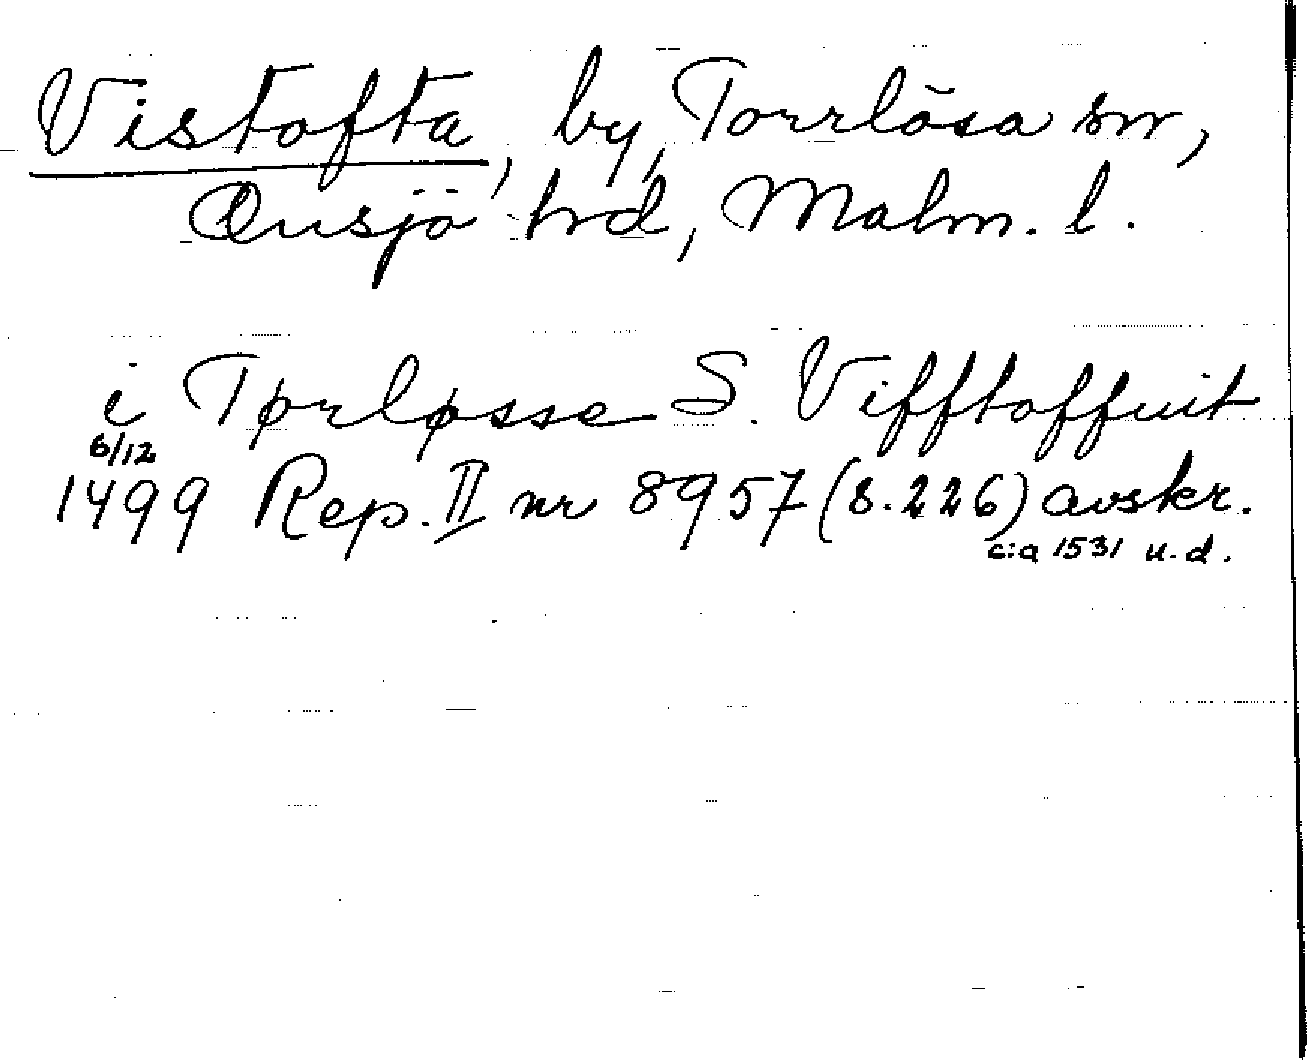 Vistofta, by, Torrlösa sn,
Onsjö hd, Malm. l.
i Tørløsse S. Vifftoffuit
6/12
1499 Rep. II nr 8957 (s. 226) avskr.
c:a 1531 u.d.